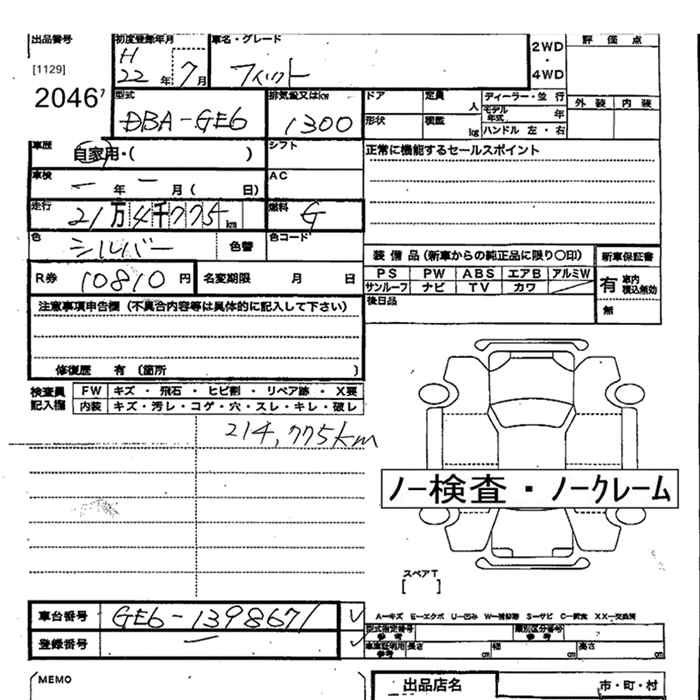 出品番号 初度登録年月 車名・グレード 評価点
[1129] H 22年 7月 フィット 2WD・4WD
2046 7
型式 排気量又はkw ドア 定員 人 ディーラー・並行 外装 内装
DBA-GE6 1300 形状 積載 kg モデル年式 年
ハンドル 左・右
車歴 自家用・( ) シフト 正常に機能するセールスポイント
車検 - 年 - 月 ( 日) AC
走行 21万4千775km 燃料 G
色 シルバー 色替 色コード 装備品(新車からの純正品に限り〇印) 新車保証書
R券 10810円 名変期限 月 日 PS PW ABS エアB アルミW 有 車内積込無効
サンルーフ ナビ TV カワ
後日品 無
注意事項申告欄(不具合内容等は具体的に記入して下さい)
修復歴 有〔箇所 〕
検査員記入欄 FW キズ・飛石・ヒビ割・リペア跡・X要
内装 キズ・汚レ・コゲ・穴・スレ・キレ・破レ
214,775km
ノー検査・ノークレーム
スペアT
[ ]
車台番号 GE6-1398671 A-キズ E-エクボ U-凹み W-補修跡 S-サビ C-腐食 XX-交換済
型式指定番号 参考 類別区分番号 参考
登録番号 - 車庫証明用 参考 長さ cm 幅 cm 高さ cm
MEMO 出品店名 市・町・村